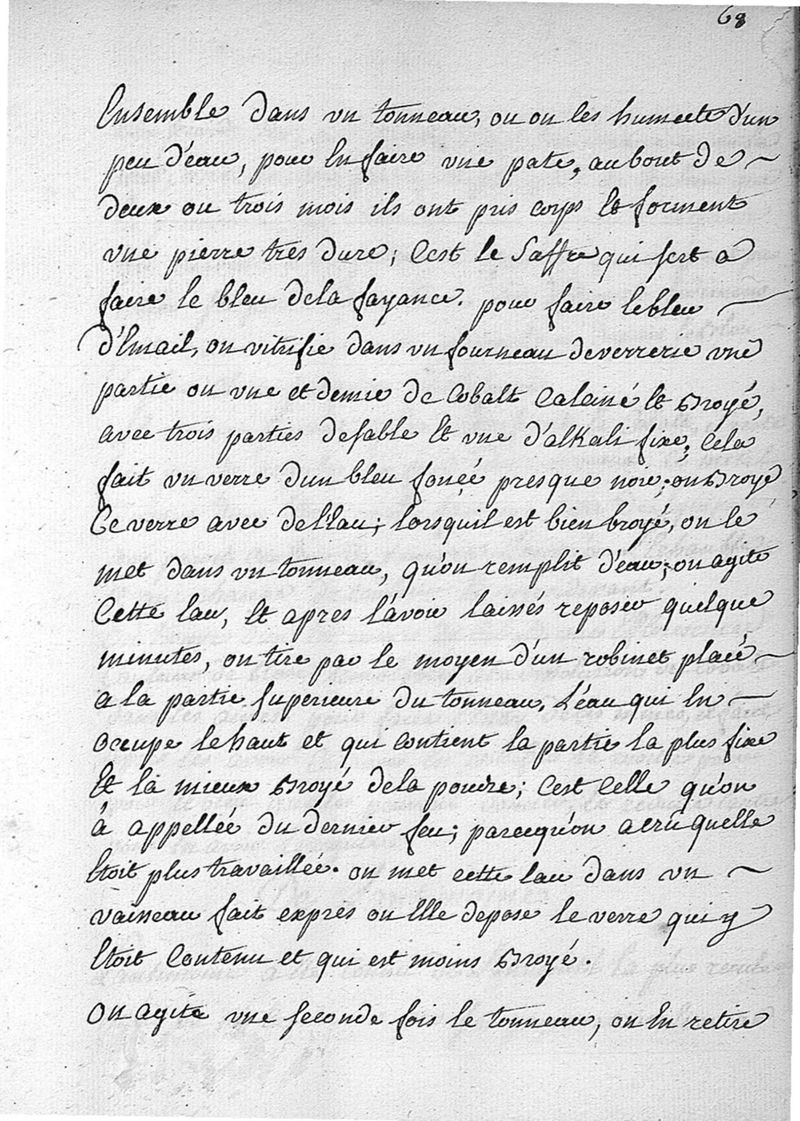 68
Ensemble dans vn tonneau, ou on les humecte d'un
peu d'eau, pour En faire vne pate, au bout de ~
deux ou trois mois ils ont pris corps Et forment
vne pierre tres dure; C'est le Saffre qui sert a
faire le bleu de la fayance. pour faire le bleu —
d'Email, on vitrifie dans vn fourneau de verrerie vne
partie ou vne et demie de Cobalt Calciné Et Broyé,
avec trois parties de sable Et vne d'alKali fixe, Cela
fait vn verre d'un bleu fonçéé presque noir; on Broye
Ce verre avec de l'Eau; lorsqu'il est bien broyé, on le
met dans vn tonneau, qu'on remplit d'eau; on agite
Cette Eau, Et apres l'avoir laissés reposer quelque
minutes, on tire par le moyen d'un robinet placé —
a la partie superieure du tonneau, L'eau qui En —
occupe le haut et qui Contient la partie la plus fixe
Et la mieux Broyé de la poudre; C'est Celle qu'on
à appellée du dernier feu; parcequ'on a crû quelle
Etoit plus travaillée. on met cette Eau dans vn ~
vaisseau fait expres ou Elle depose le verre qui y
Etoit Contenu et qui est moins Broyé.
On agite vne seconde fois le tonneau, on En retire